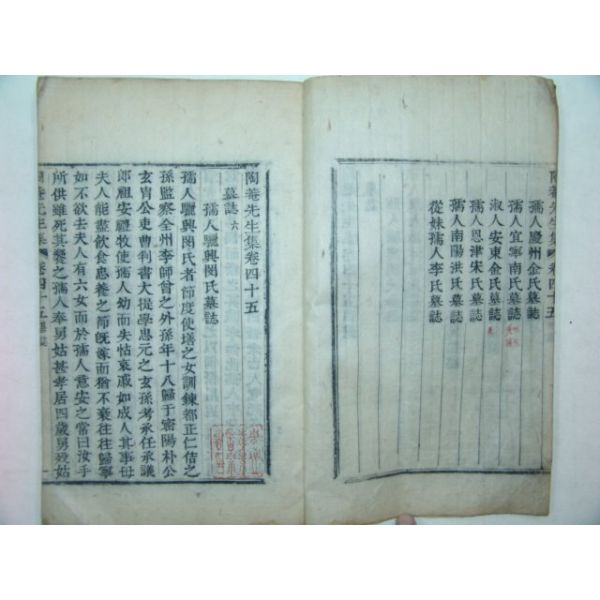 陶菴先生集 卷四十五
孺人慶州金氏墓誌
孺人宜寧南氏墓誌
淑人安東金氏墓誌
孺人恩津宋氏墓誌
孺人南陽洪氏墓誌
從妹孺人李氏墓誌
陶菴先生集卷四十五
墓誌 六
孺人驪興閔氏墓誌
孺人驪興閔氏者節度使墡之女訓鍊都正仁佶之
孫監察全州李師曾之外孫年十八歸于密陽朴公
玄胄公吏曹判書大提學忠元之玄孫考承任承議
郎祖安禮牧使孺人幼而失怙哀戚如成人其事母
夫人能盡飮食忠養之節旣嫁而猶不棄往往歸寧
如不欲去夫人有六女而於孺人意安之常曰汝手
所供雖死其養之孺人奉舅姑甚孝居四歲舅歿姑
陶菴先生集 卷四十五 墓誌 一